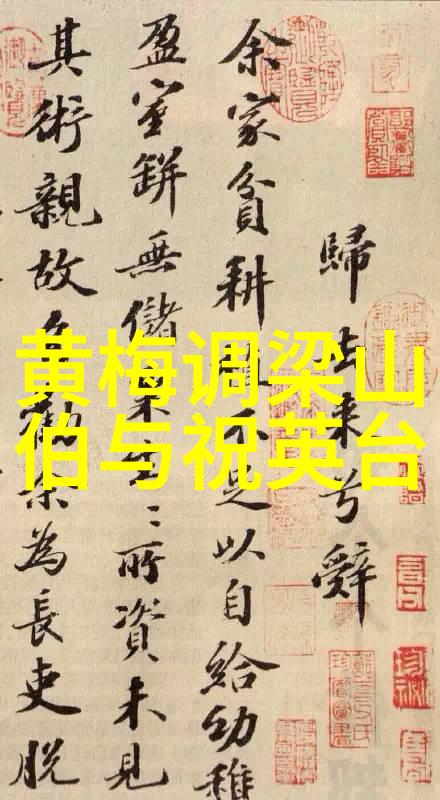 黄梅调梁山
伯与祝英台
歸去來兮辭
余家貧耕不足以自給幼稚
盈室缾無儲粟生〻所資未見
其術親故多勸余為長吏脫